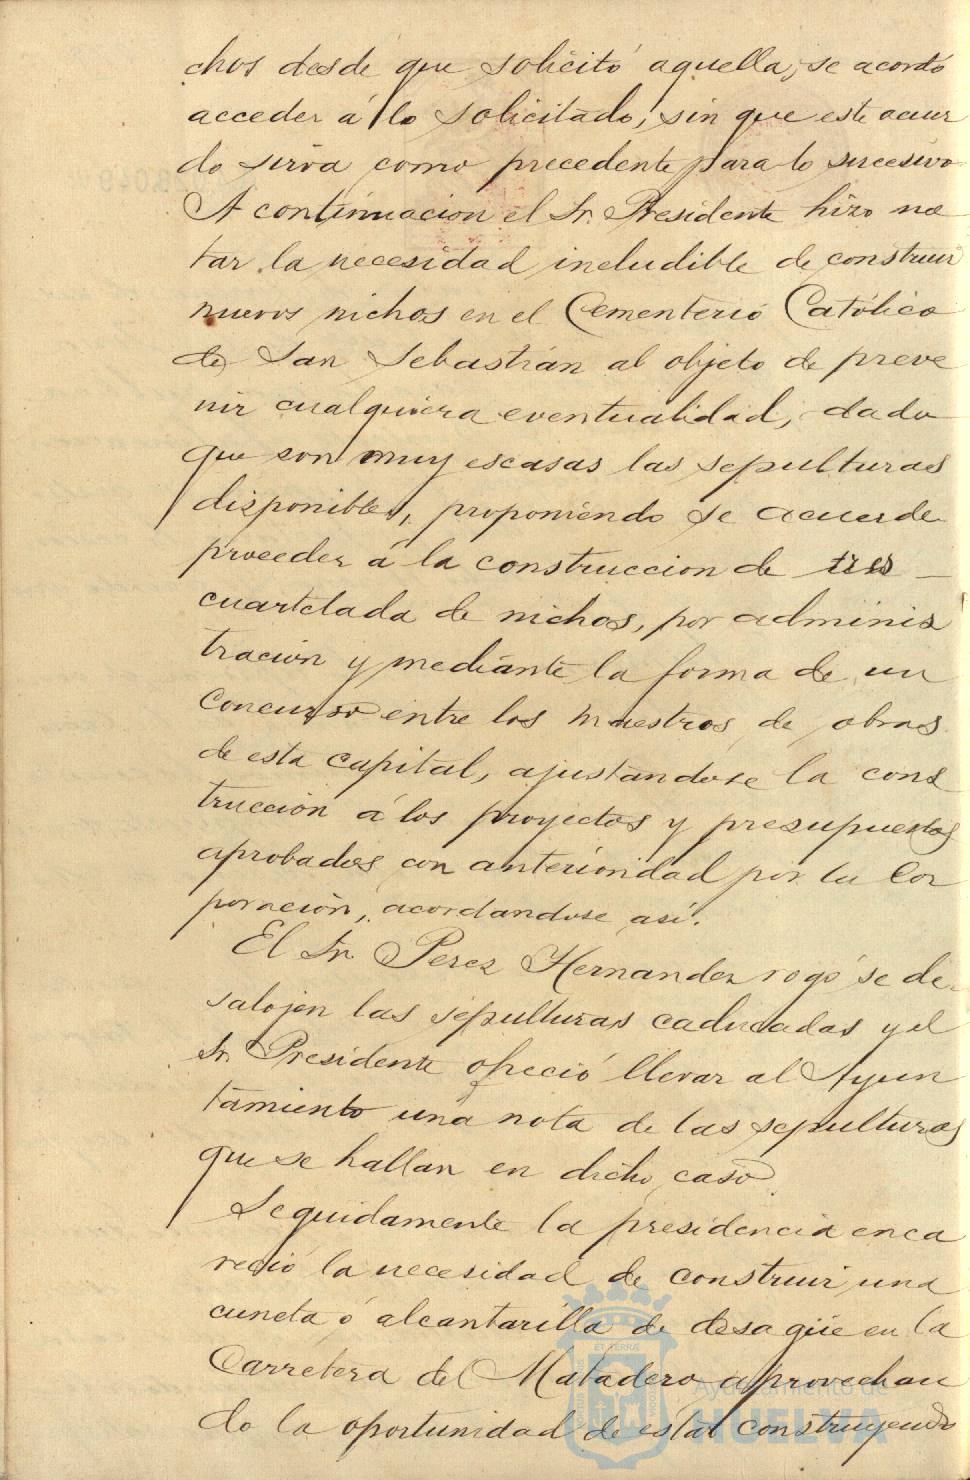 chos desde que solicitó aquella, se acordó
acceder á lo solicitado, sin que este acuer
do sirva como precedente para lo sucesivo
A continuacion el Sr. Presidente hizo no
tar la necesidad ineludible de construir
nuevos nichos en el Cementerio Católico
de San Sebastián al objeto de preve
nir cualquiera eventualidad, dado
que son muy escasas las sepulturas
disponibles, proponiendo se acuerde
proceder á la construccion de tres
cuartelada de nichos, por adminis
tración y mediante la forma de un
concurso entre los maestros de obras
de esta capital, ajustandose la cons
trucción á los proyectos y presupuestos
aprobados con anterioridad por la Cor
poración, acordandose así.
El Sr. Perez Hernandez rogó se de
salojen las sepulturas caducadas y el
Sr. Presidente ofreció llevar al Ayun
tamiento una nota de las sepulturas
que se hallan en dicho caso
Seguidamente la presidencia enca
reció la necesidad de construir una
cuneta ó alcantarilla de desagüe en la
Carretera del Matadero aprovechan
do la oportunidad de estar construyendo
Ayuntamiento de
HUELVA